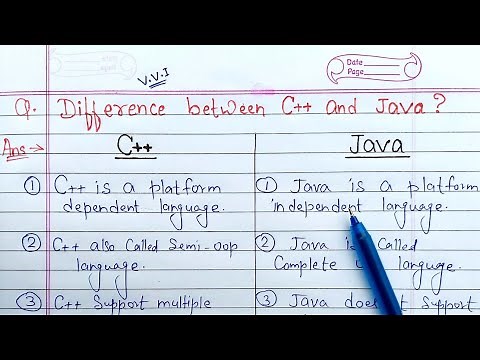 V.V.I
Date
Page
Q. Difference between C++ and Java?
Ans→
C++
Java
① C++ is a platform
dependent language.
① Java is a platform
independent language.
② C++ also Called Semi-oop
language.
② Java is Called
Complete language.
③ C++ Support multiple
③ Java does Support